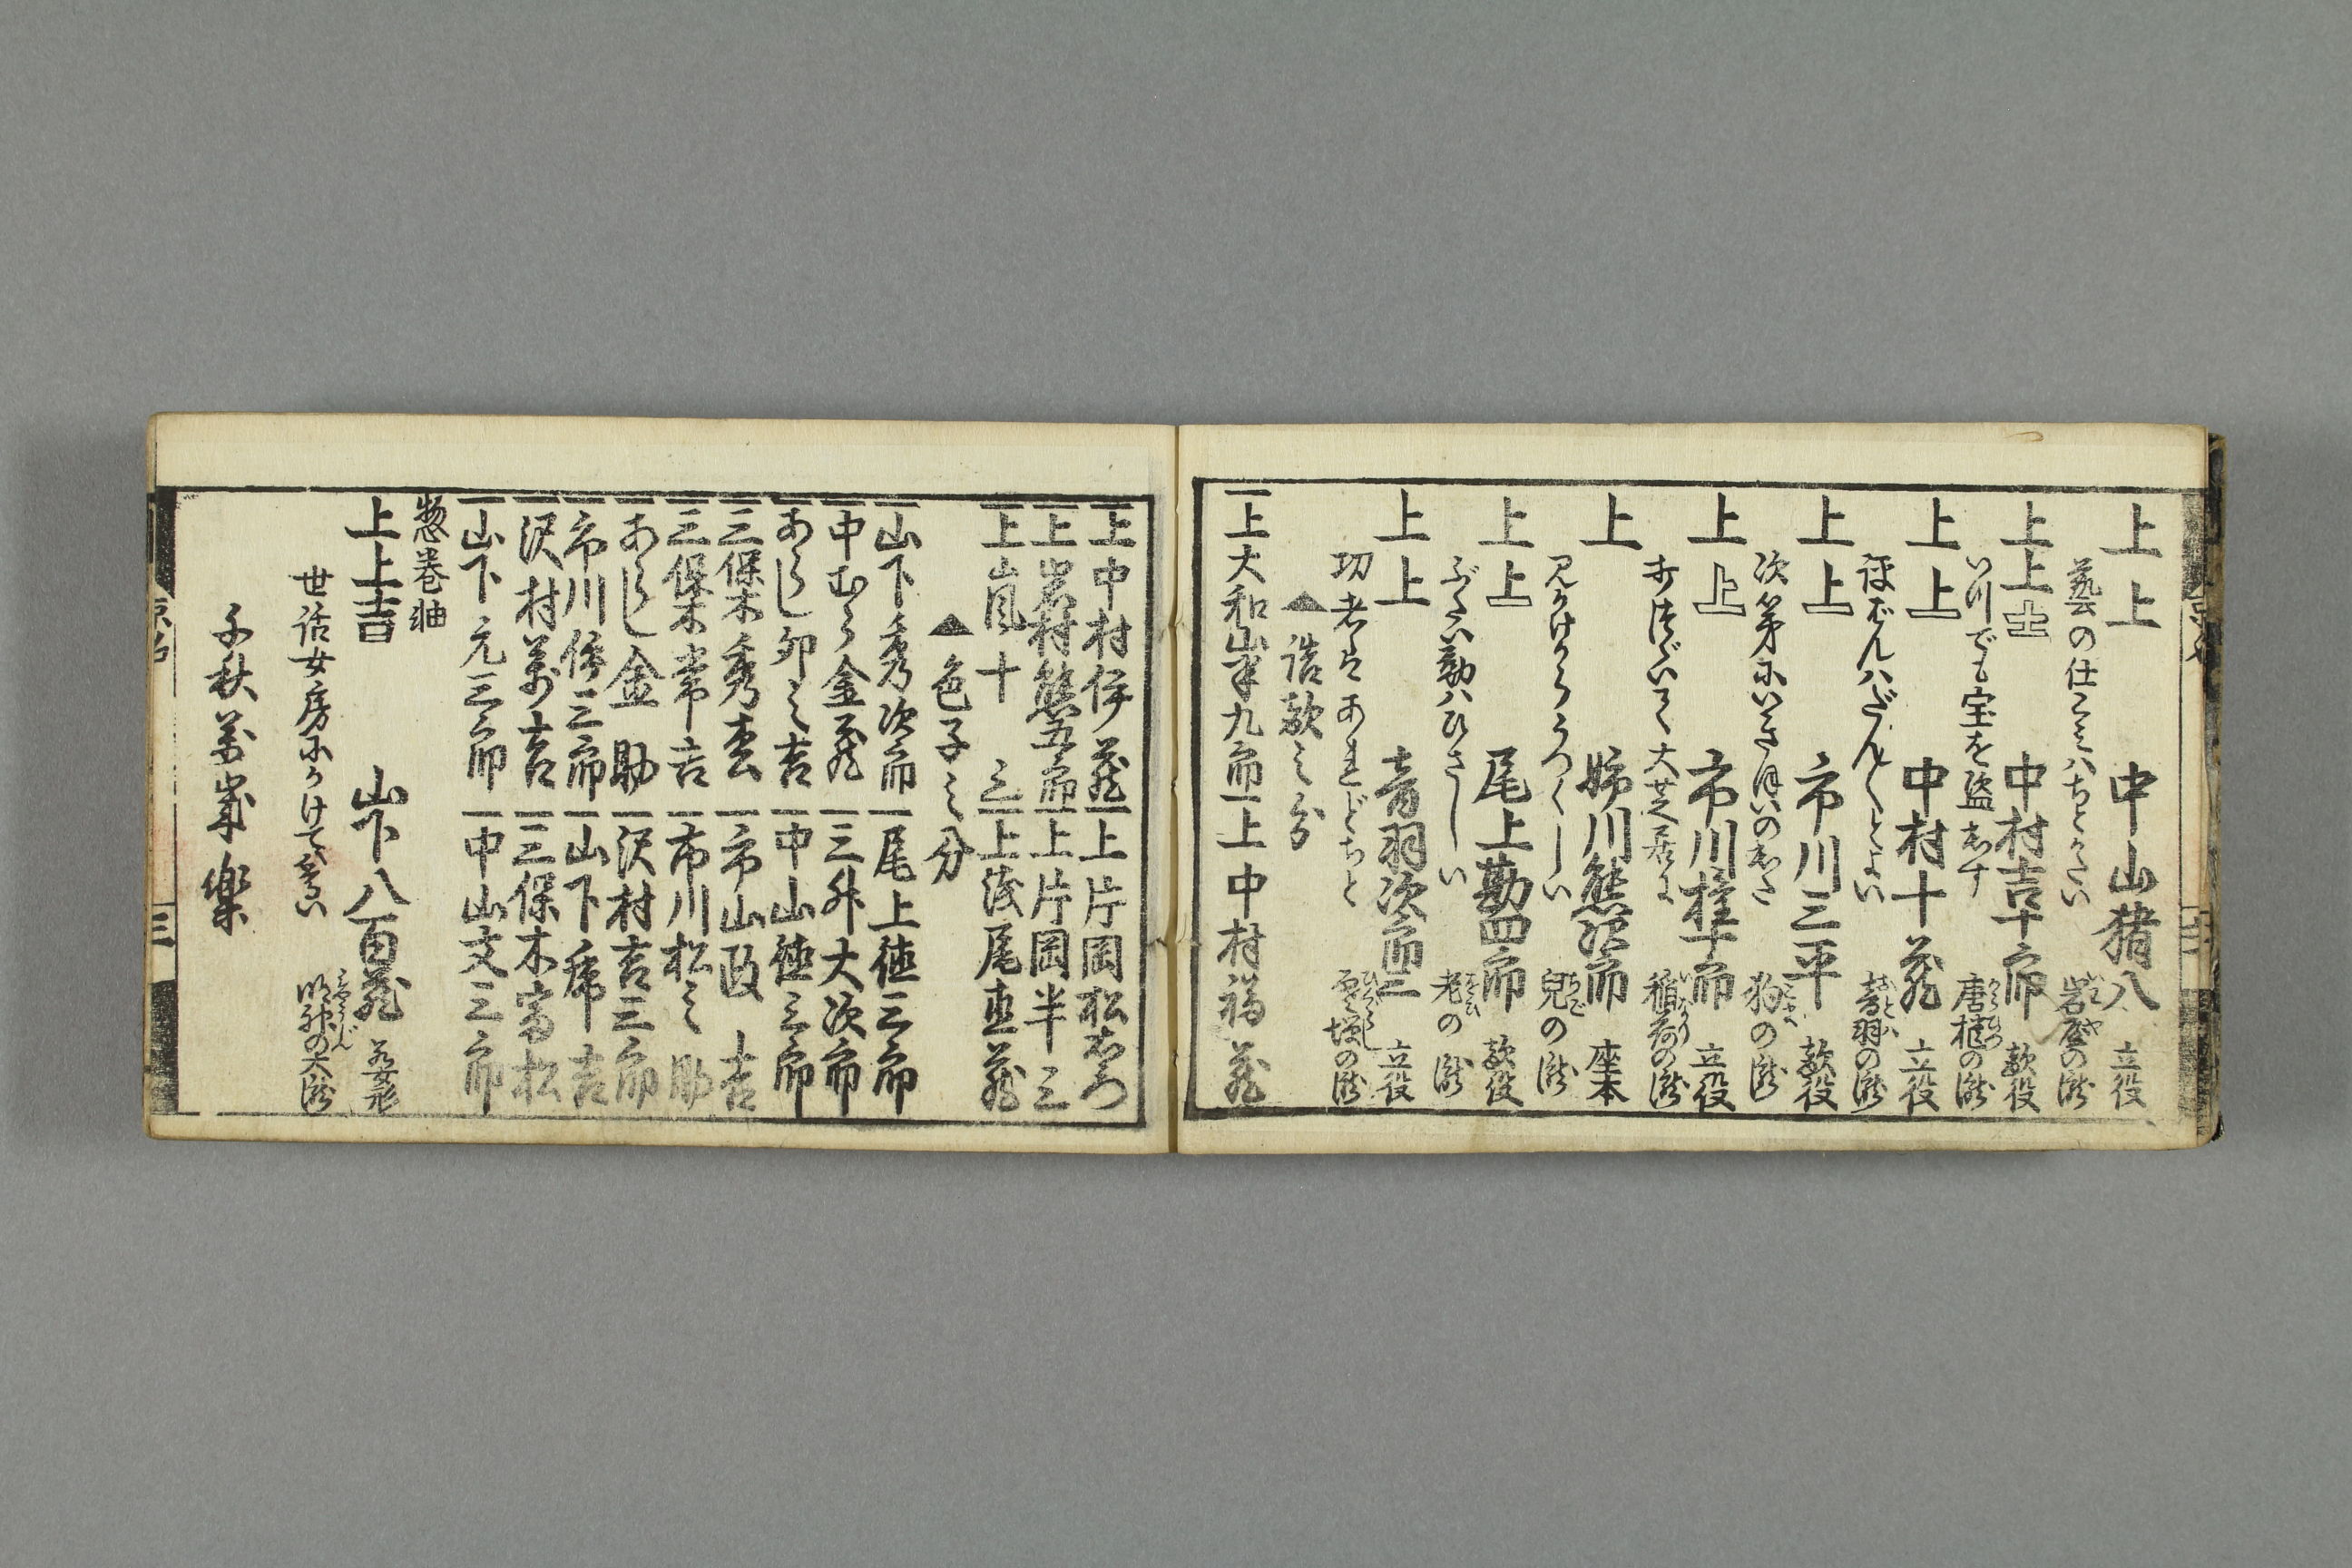 上上 中山猪八 立役
藝の仕こミハちとかたい 岩屋の瀧
上上吉 中村吉十郎 敵役
いつでも宝を盗出す 唐櫃の瀧
上上 中村十蔵 立役
評ばんハだん〱とよい 音羽の瀧
上上 市川三平 敵役
次第にいきほいの出た 狗の瀧
上上 市川桂十郎 立役
おつゞいて大芝居に 稲荷の瀧
上 姉川熊次郎 座本
見かけからうつくしい 兒の瀧
上上 尾上勘四郎 敵役
ぶたい勤ハひさしい 老の瀧
上上 音羽次郎三 立役
功者はあれどちと の瀧
▲詰敵之分
一上大和山峯九郎 一上中村福蔵
一上中村伊蔵 一上片岡松右衛門
一上岩村熊五郎 一上片岡半三
一上嵐十三 一上浅尾直蔵
▲色子之分
一山下秀次郎 一尾上徳三郎
一中むら金蔵 一三舛大次郎
一あらし卯之吉 一中山徳三郎
一三保木秀松 一市山政吉
一三保木常吉 一市川松之助
一あらし金助 一沢村吉三郎
一市川傳三郎 一山下乕吉
一沢村萬吉 一三保木富松
一山下元三郎 一中山文三郎
惣巻軸
上上吉 山下八百蔵 若女形
世話女房にかけて 明神の大瀧
千秋萬歳樂
三